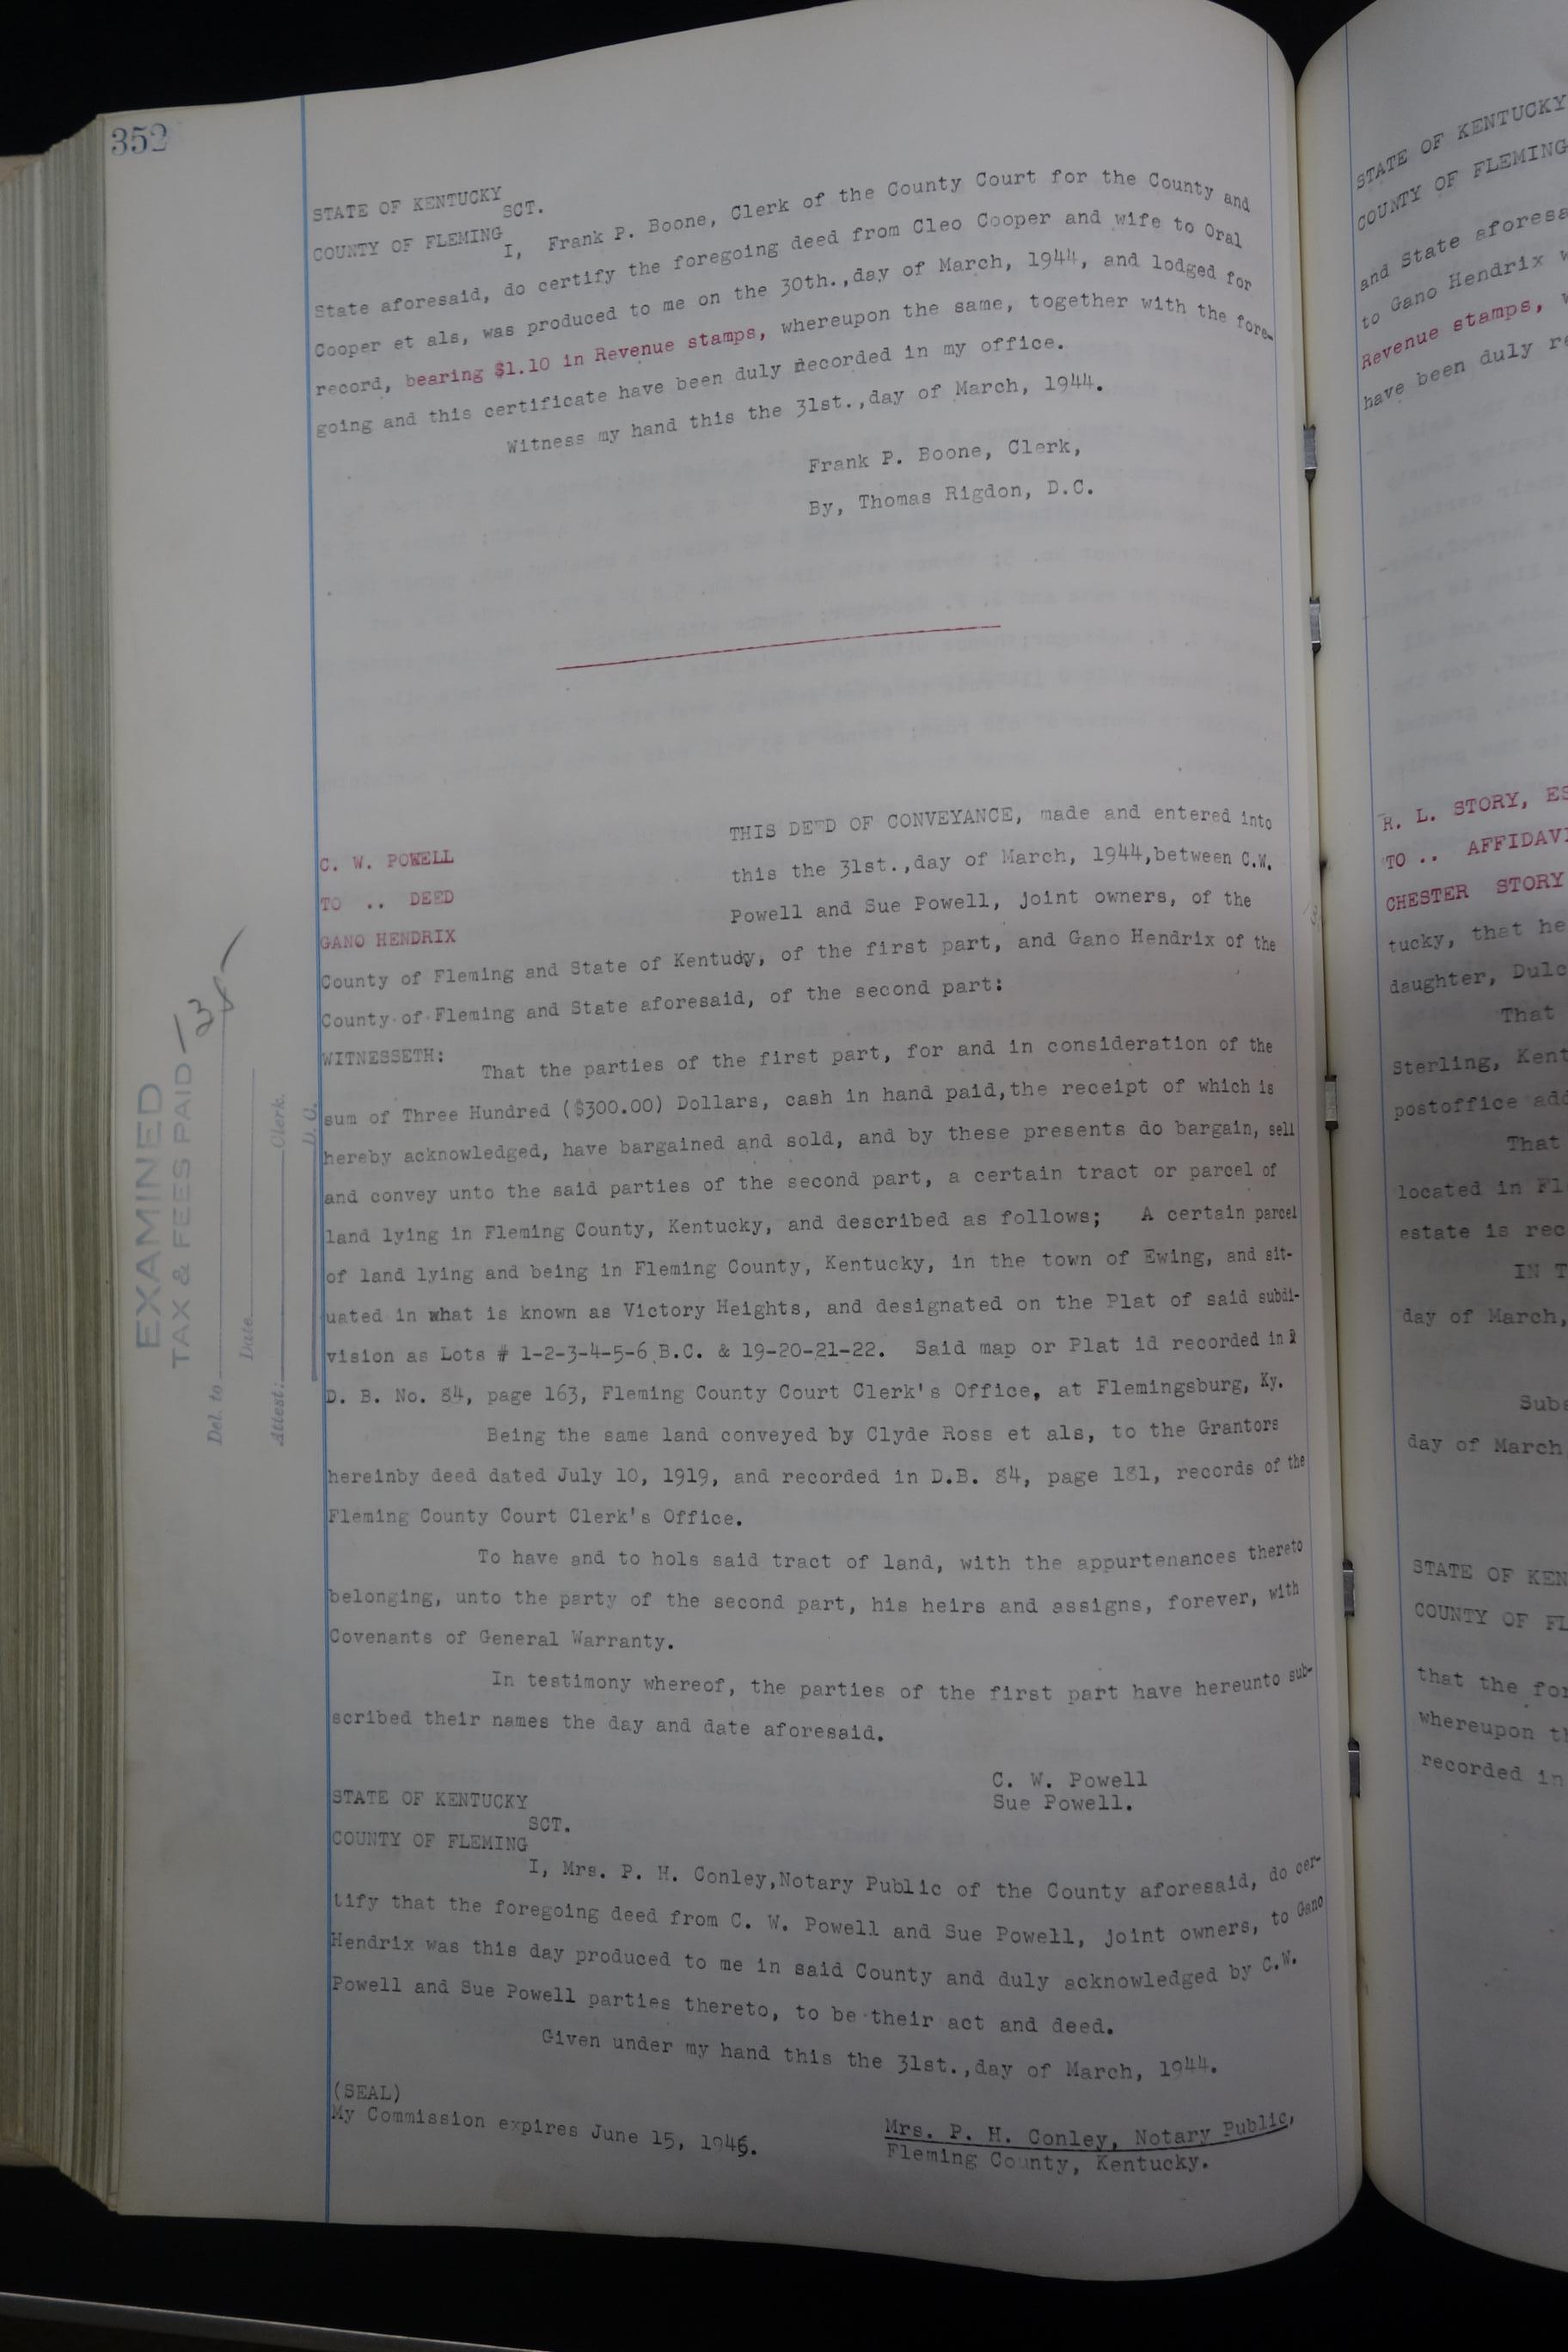 352
STATE OF KENTUCKY
SCT.
COUNTY OF FLEMING
I, Frank P. Boone, Clerk of the County Court for the County and
State aforesaid, do certify the foregoing deed from Cleo Cooper and wife to Oral
Cooper et als, was produced to me on the 30th.,day of March, 1944, and lodged for
record, bearing $1.10 in Revenue stamps, whereupon the same, together with the fore-
going and this certificate have been duly recorded in my office.
Witness my hand this the 31st.,day of March, 1944.
Frank P. Boone, Clerk,
By, Thomas Rigdon, D.C.
C. W. POWELL
TO .. DEED
GANO HENDRIX
THIS DEED OF CONVEYANCE, made and entered into
this the 31st.,day of March, 1944,between C.W.
Powell and Sue Powell, joint owners, of the
County of Fleming and State of Kentudy, of the first part, and Gano Hendrix of the
County of Fleming and State aforesaid, of the second part:
WITNESSETH:
That the parties of the first part, for and in consideration of the
sum of Three Hundred ($300.00) Dollars, cash in hand paid,the receipt of which is
hereby acknowledged, have bargained and sold, and by these presents do bargain, sell
and convey unto the said parties of the second part, a certain tract or parcel of
land lying in Fleming County, Kentucky, and described as follows; A certain parcel
of land lying and being in Fleming County, Kentucky, in the town of Ewing, and sit-
uated in what is known as Victory Heights, and designated on the Plat of said subdi-
vision as Lots # 1-2-3-4-5-6 B.C. & 19-20-21-22. Said map or Plat id recorded in
D. B. No. 84, page 163, Fleming County Court Clerk's Office, at Flemingsburg, Ky.
Being the same land conveyed by Clyde Ross et als, to the Grantors
hereinby deed dated July 10, 1919, and recorded in D.B. 84, page 181, records of the
Fleming County Court Clerk's Office.
To have and to hols said tract of land, with the appurtenances thereto
belonging, unto the party of the second part, his heirs and assigns, forever, with
Covenants of General Warranty.
In testimony whereof, the parties of the first part have hereunto sub-
scribed their names the day and date aforesaid.
C. W. Powell
Sue Powell.
STATE OF KENTUCKY
SCT.
COUNTY OF FLEMING
I, Mrs. P. H. Conley,Notary Public of the County aforesaid, do cer-
tify that the foregoing deed from C. W. Powell and Sue Powell, joint owners, to Gano
Hendrix was this day produced to me in said County and duly acknowledged by C.W.
Powell and Sue Powell parties thereto, to be their act and deed.
Given under my hand this the 31st.,day of March, 1944.
(SEAL)
My Commission expires June 15, 1946.
Mrs. P. H. Conley, Notary Public,
Fleming County, Kentucky.
EXAMINED
TAX & FEES PAID
Del. to
Date
Attest: Clerk.
D. C.
STATE OF KENTUCKY
COUNTY OF FLEMING
and State aforesa
to Gano Hendrix w
Revenue stamps, w
have been duly re
R. L. STORY, ES
TO .. AFFIDAVI
CHESTER STORY
tucky, that he
daughter, Dulc
That
Sterling, Kent
postoffice add
That
located in Fl
estate is rec
IN T
day of March,
Subs
day of March
STATE OF KEN
COUNTY OF FL
that the for
whereupon th
recorded in